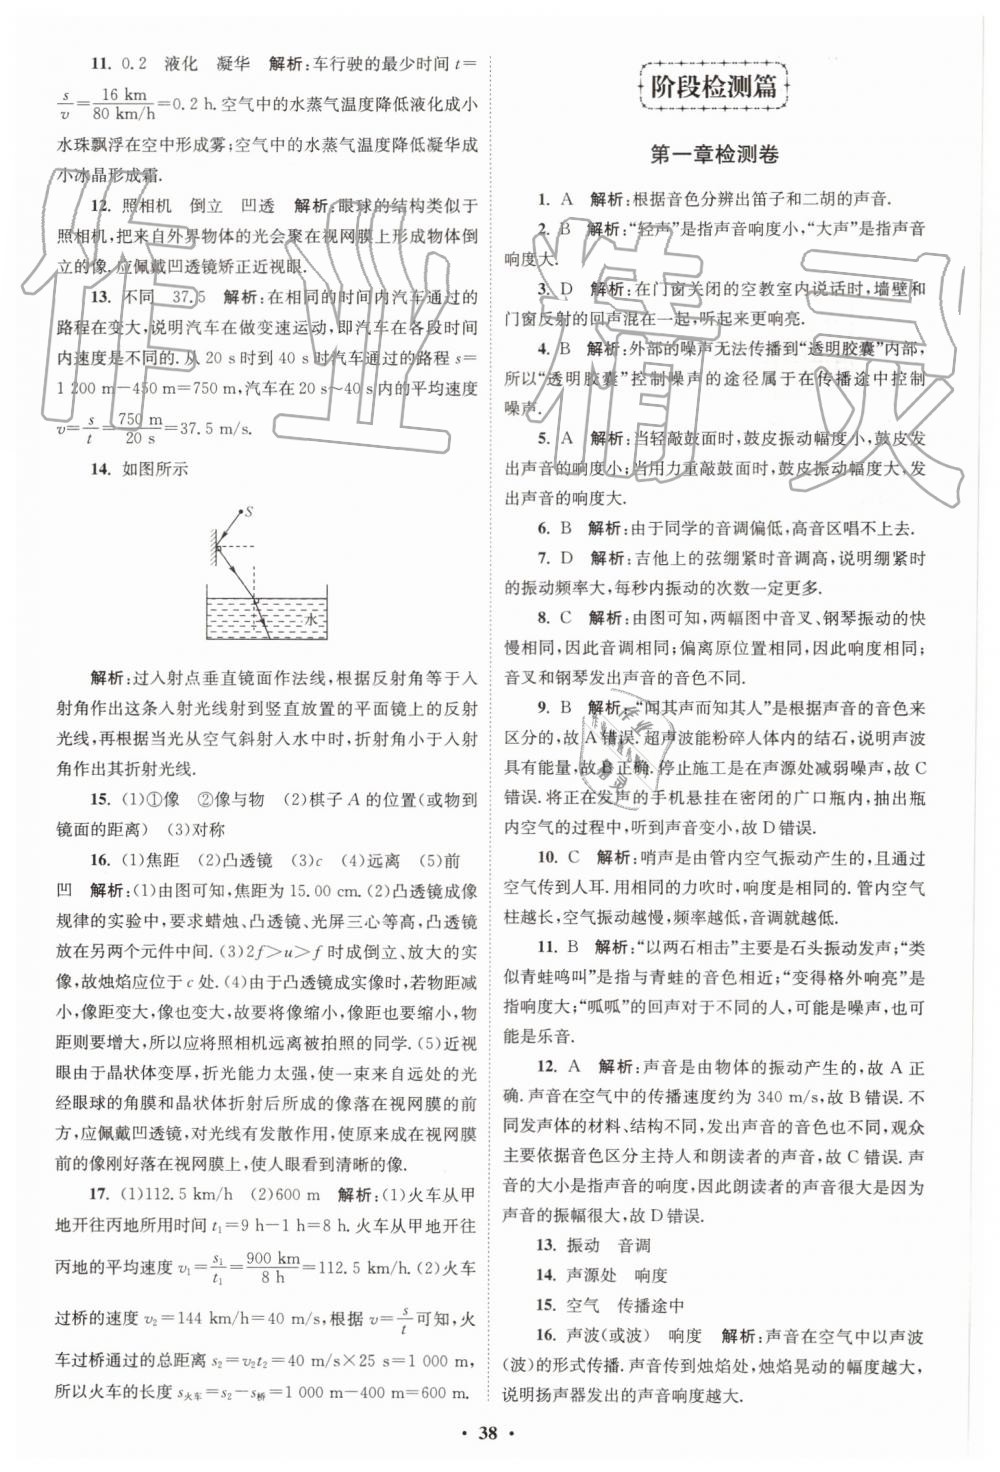 11. 0.2　液化　凝华　解析:车行驶的最少时间 t=
s/v=16 km/80 km/h=0.2 h.空气中的水蒸气温度降低液化成小
水珠飘浮在空中形成雾;空气中的水蒸气温度降低凝华成
小冰晶形成霜.
12. 照相机　倒立　凹透　解析:眼球的结构类似于
照相机,把来自外界物体的光会聚在视网膜上形成物体倒
立的像.应佩戴凹透镜矫正近视眼.
13. 不同　37.5　解析:在相同的时间内汽车通过的
路程在变大,说明汽车在做变速运动,即汽车在各段时间
内速度是不同的.从 20 s时到 40 s时汽车通过的路程 s=
1 200 m－450 m=750 m,汽车在 20 s~40 s内的平均速度
v=s/t=750 m/20 s=37.5 m/s.
14. 如图所示
S
水
解析:过入射点垂直镜面作法线,根据反射角等于入
射角作出这条入射光线射到竖直放置的平面镜上的反射
光线,再根据当光从空气斜射入水中时,折射角小于入射
角作出其折射光线.
15. (1)①像　②像与物　(2)棋子 A 的位置(或物到
镜面的距离)　(3)对称
16. (1)焦距　(2)凸透镜　(3)c　(4)远离　(5)前
凹　解析:(1)由图可知,焦距为 15.00 cm.(2)凸透镜成像
规律的实验中,要求蜡烛、凸透镜、光屏三心等高,凸透镜
放在另两个元件中间.(3)2f>u>f 时成倒立、放大的实
像,故烛焰应位于 c 处.(4)由于凸透镜成实像时,若物距减
小,像距变大,像也变大,故要将像缩小,像距也要缩小,物
距则要增大,所以应将照相机远离被拍照的同学.(5)近视
眼由于晶状体变厚,折光能力太强,使一束来自远处的光
经眼球的角膜和晶状体折射后所成的像落在视网膜的前
方,应佩戴凹透镜,对光线有发散作用,使原来成在视网膜
前的像刚好落在视网膜上,使人眼看到清晰的像.
17. (1)112.5 km/h　(2)600 m　解析:(1)火车从甲
地开往丙地所用时间 t₁=9 h－1 h=8 h.火车从甲地开往
丙地的平均速度 v₁=s₁/t₁=900 km/8 h=112.5 km/h.(2)火车
过桥的速度 v₂=144 km/h=40 m/s,根据 v=s/t可知,火
车过桥通过的总距离 s₂=v₂t₂=40 m/s×25 s=1 000 m,
所以火车的长度 s火车=s₂－s桥=1 000 m－400 m=600 m.
阶段检测篇
第一章检测卷
1. A　解析:根据音色分辨出笛子和二胡的声音.
2. B　解析:“轻声”是指声音响度小,“大声”是指声音
响度大.
3. D　解析:在门窗关闭的空教室内说话时,墙壁和
门窗反射的回声混在一起,听起来更响亮.
4. B　解析:外部的噪声无法传播到“透明胶囊”内部,
所以“透明胶囊”控制噪声的途径属于在传播途中控制
噪声.
5. A　解析:当轻敲鼓面时,鼓皮振动幅度小,鼓皮发
出声音的响度小;当用力重敲鼓面时,鼓皮振动幅度大,发
出声音的响度大.
6. B　解析:由于同学的音调偏低,高音区唱不上去.
7. D　解析:吉他上的弦绷紧时音调高,说明绷紧时
的振动频率大,每秒内振动的次数一定更多.
8. C　解析:由图可知,两幅图中音叉、钢琴振动的快
慢相同,因此音调相同;偏离原位置相同,因此响度相同;
音叉和钢琴发出声音的音色不同.
9. B　解析:“闻其声而知其人”是根据声音的音色来
区分的,故 A 错误.超声波能粉碎人体内的结石,说明声波
具有能量,故 B 正确.停止施工是在声源处减弱噪声,故 C
错误.将正在发声的手机悬挂在密闭的广口瓶内,抽出瓶
内空气的过程中,听到声音变小,故 D 错误.
10. C　解析:哨声是由管内空气振动产生的,且通过
空气传到人耳.用相同的力吹时,响度是相同的.管内空气
柱越长,空气振动越慢,频率越低,音调就越低.
11. B　解析:“以两石相击”主要是石头振动发声;“类
似青蛙鸣叫”是指与青蛙的音色相近;“变得格外响亮”是
指响度大;“呱呱”的回声对于不同的人,可能是噪声,也可
能是乐音.
12. A　解析:声音是由物体的振动产生的,故 A 正
确.声音在空气中的传播速度约为 340 m/s,故 B 错误.不
同发声体的材料、结构不同,发出声音的音色也不同,观众
主要依据音色区分主持人和朗读者的声音,故 C 错误.声
音的大小是指声音的响度,因此朗读者的声音很大是因为
声音的振幅很大,故 D 错误.
13. 振动　音调
14. 声源处　响度
15. 空气　传播途中
16. 声波(或波)　响度　解析:声音在空气中以声波
(波)的形式传播.声音传到烛焰处,烛焰晃动的幅度越大,
说明扬声器发出的声音响度越大.
• 38 •
作业精灵